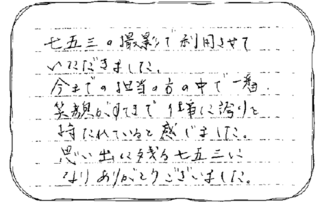 七五三の撮影で利用させて
いただきました。
今までの担当の方の中で一番
笑顔がすてきで仕事に誇りを
持たれていると感じました。
思い出に残る七五三に
なりありがとうございました。